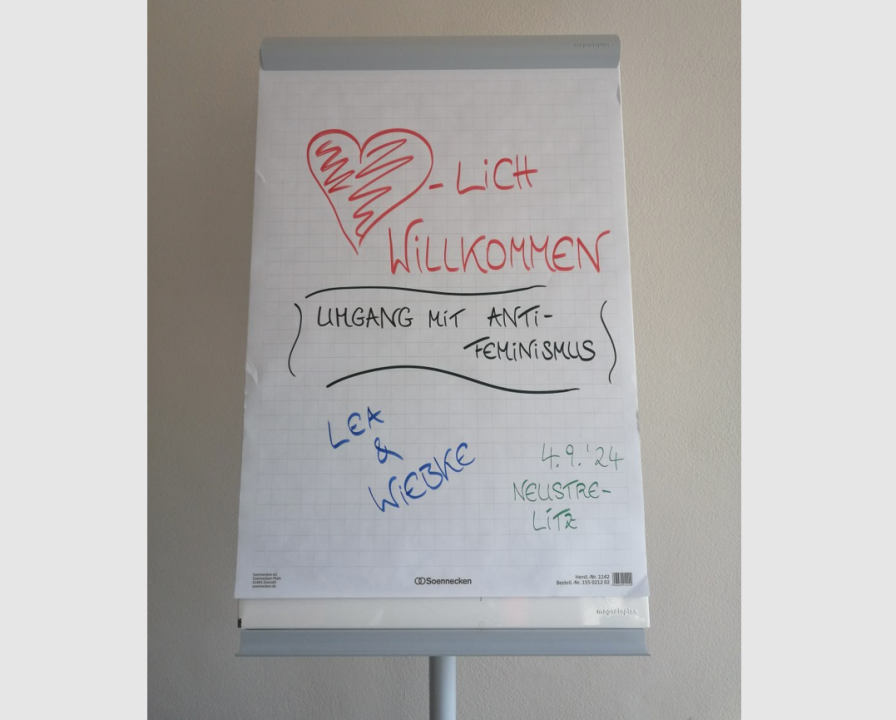 -LiCH
WiLLKOMMEN
UMGANG MiT ANTi-
FEMiNiSMUS
LEA
&
WiEBKE
4.9.'24
NEUSTRE-
LiTZ
Soennecken
Herst.-Nr. 1142